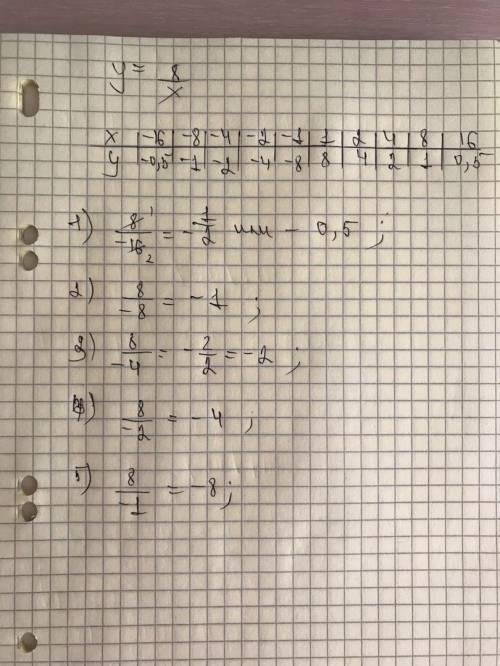 y = 8/x
x | -16 | -8 | -4 | -2 | -1 | 1 | 2 | 4 | 8 | 16
y | -0,5 | -1 | -2 | -4 | -8 | 8 | 4 | 2 | 1 | 0,5
1) 8 1/-16 2 = - 1/2 или - 0,5 ;
2) 8/-8 = - 1 ;
3) 8/-4 = - 2/2 = - 2 ;
4) 8/-2 = - 4 ;
5) 8/-1 = - 8 ;